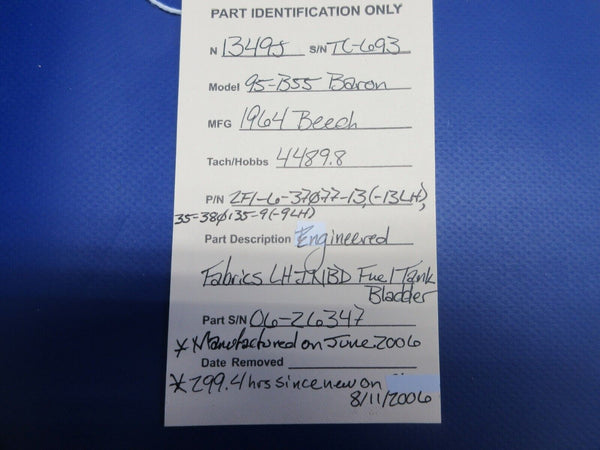 PART IDENTIFICATION ONLY
N 1349J S/N TC-693
Model 95-B55 Baron
MFG 1964 Beech
Tach/Hobbs 4489.8
P/N 2F1-6-37077-13,(-13LH),
35-380135-9(-9LH)
Part Description Engineered
Fabrics LH INBD Fuel Tank
Bladder
Part S/N 06-26347
* Manufactured on June 2006
Date Removed
* 299.4 hrs since new on
8/11/2006